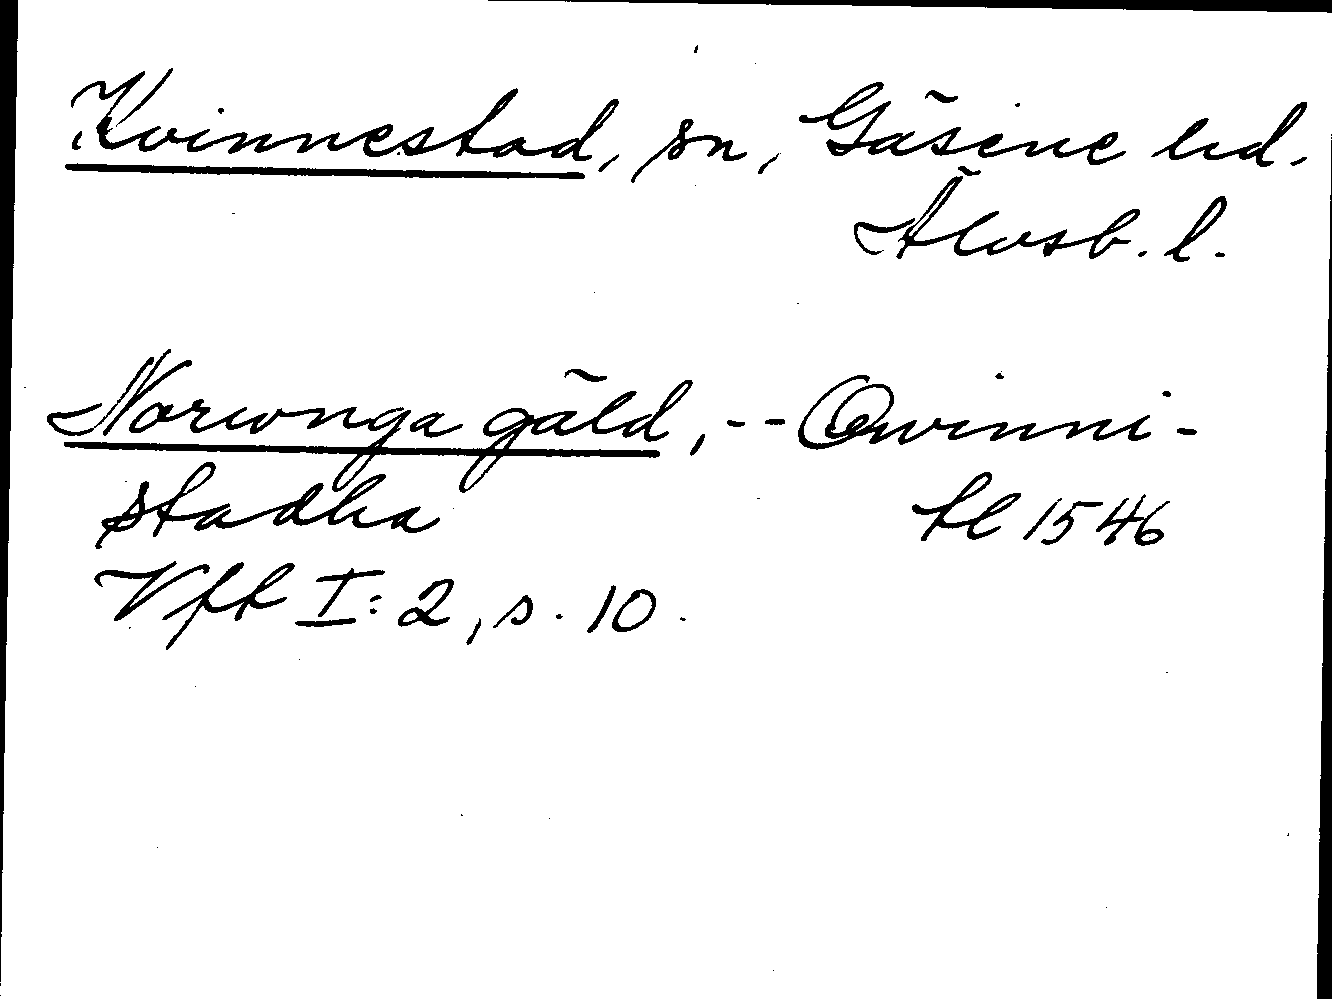 Kvinnestad, sn, Gäsene hd.
Älvsb. l.
Norunga gäld, -- Qwinni-
stadha tl 1546
Vff I:2, s. 10.